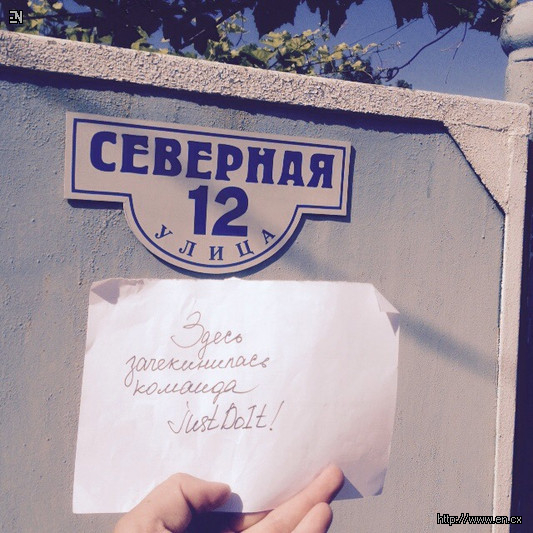 EN
СЕВЕРНАЯ
12
УЛИЦА
Здесь
зачекинилась
команда
JustDoIt!
http://www.en.cx